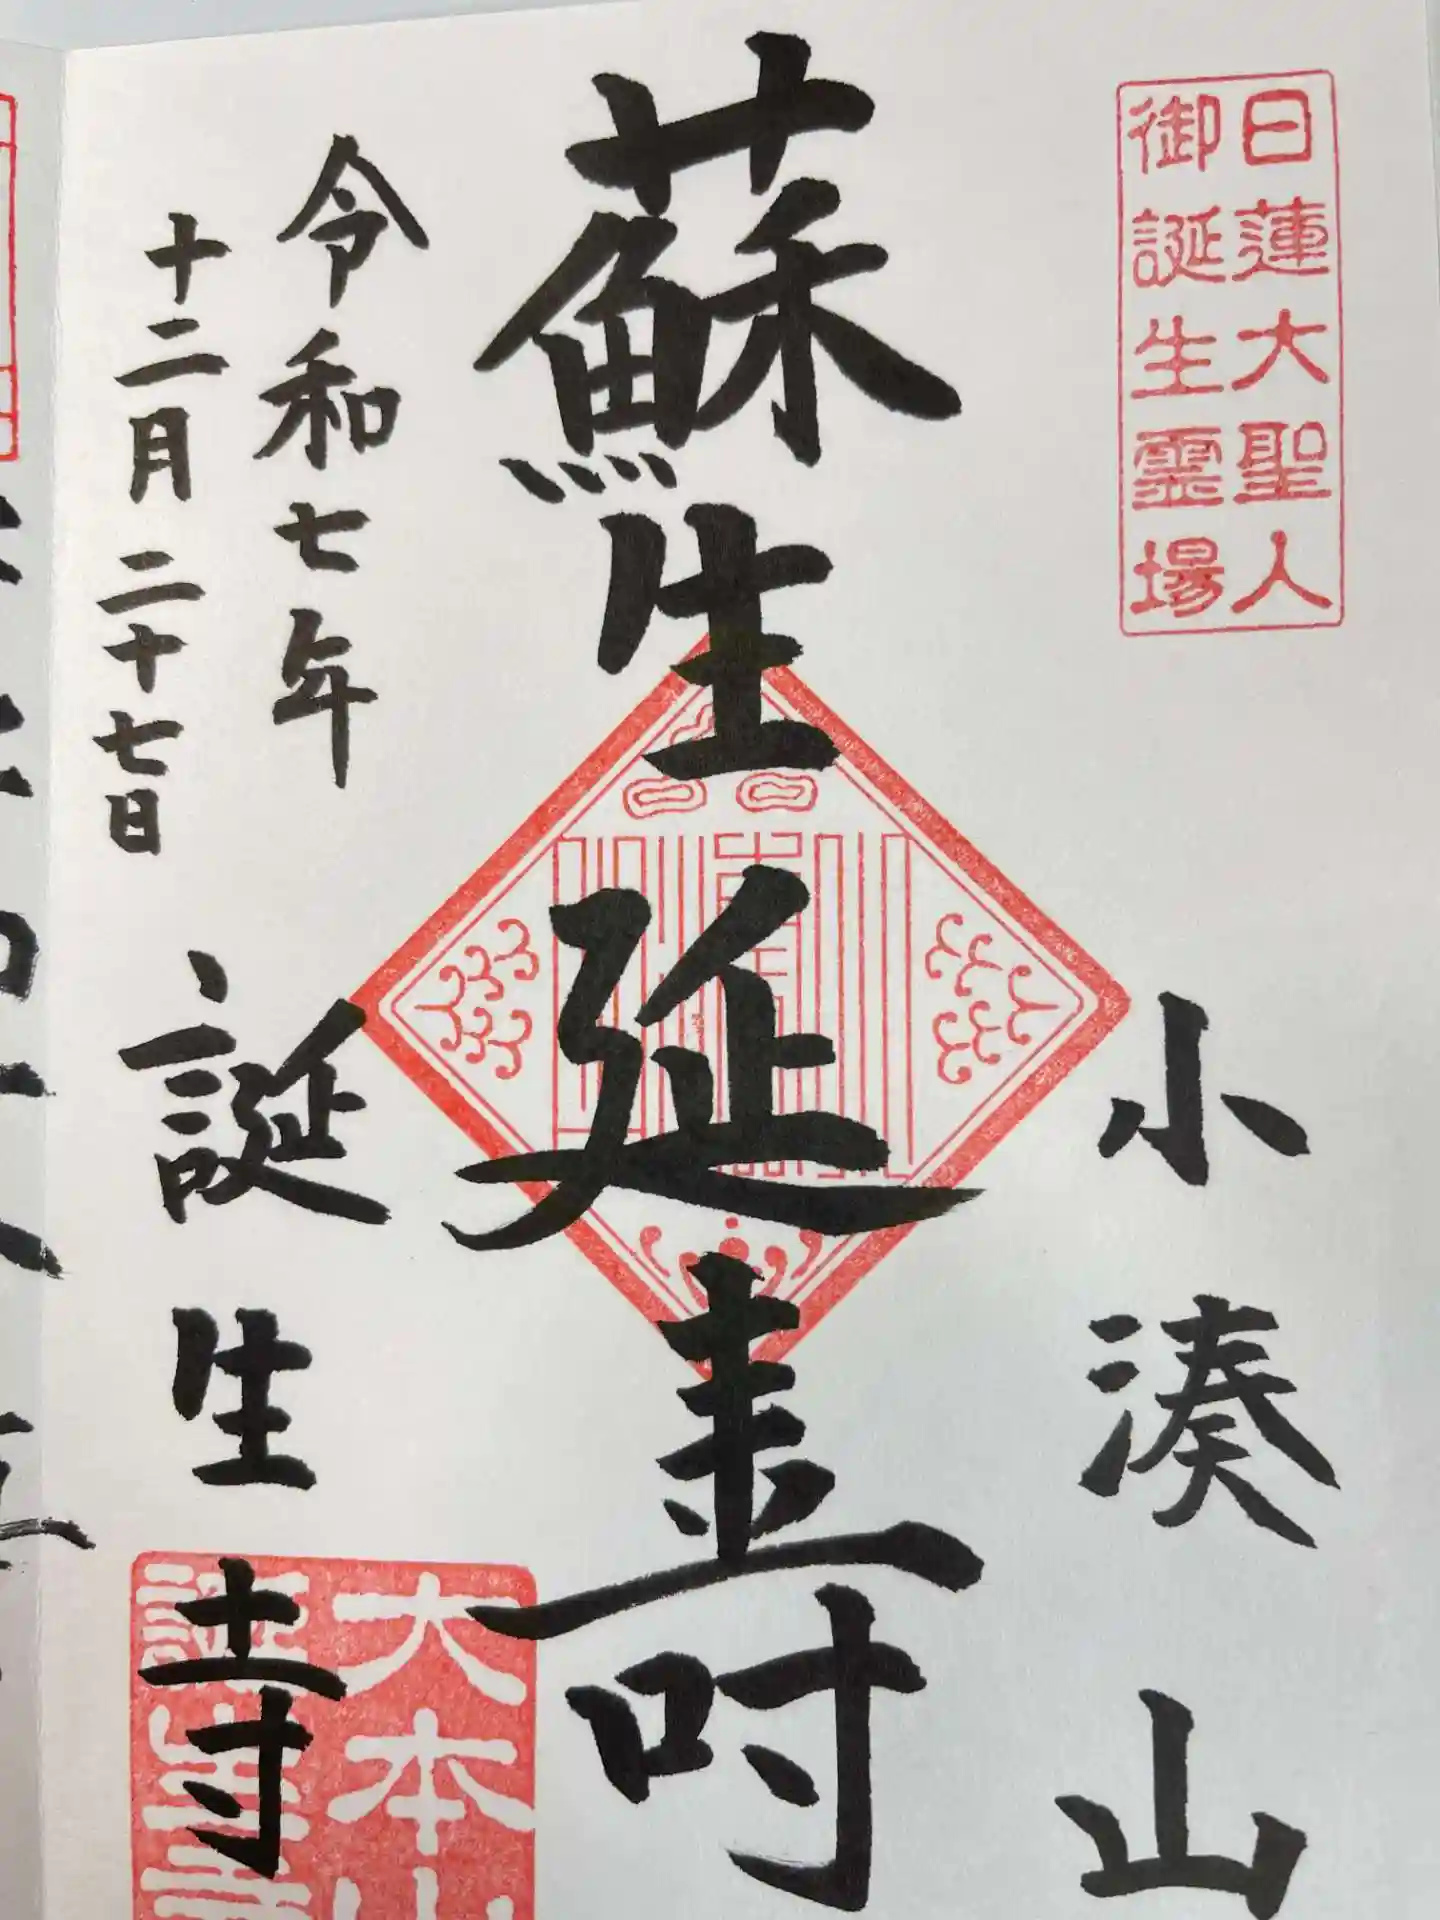 日蓮大聖人
御誕生霊場
小湊山
蘇生延壽
令和七年
十二月二十七日
誕生寺
大本山
誕生寺